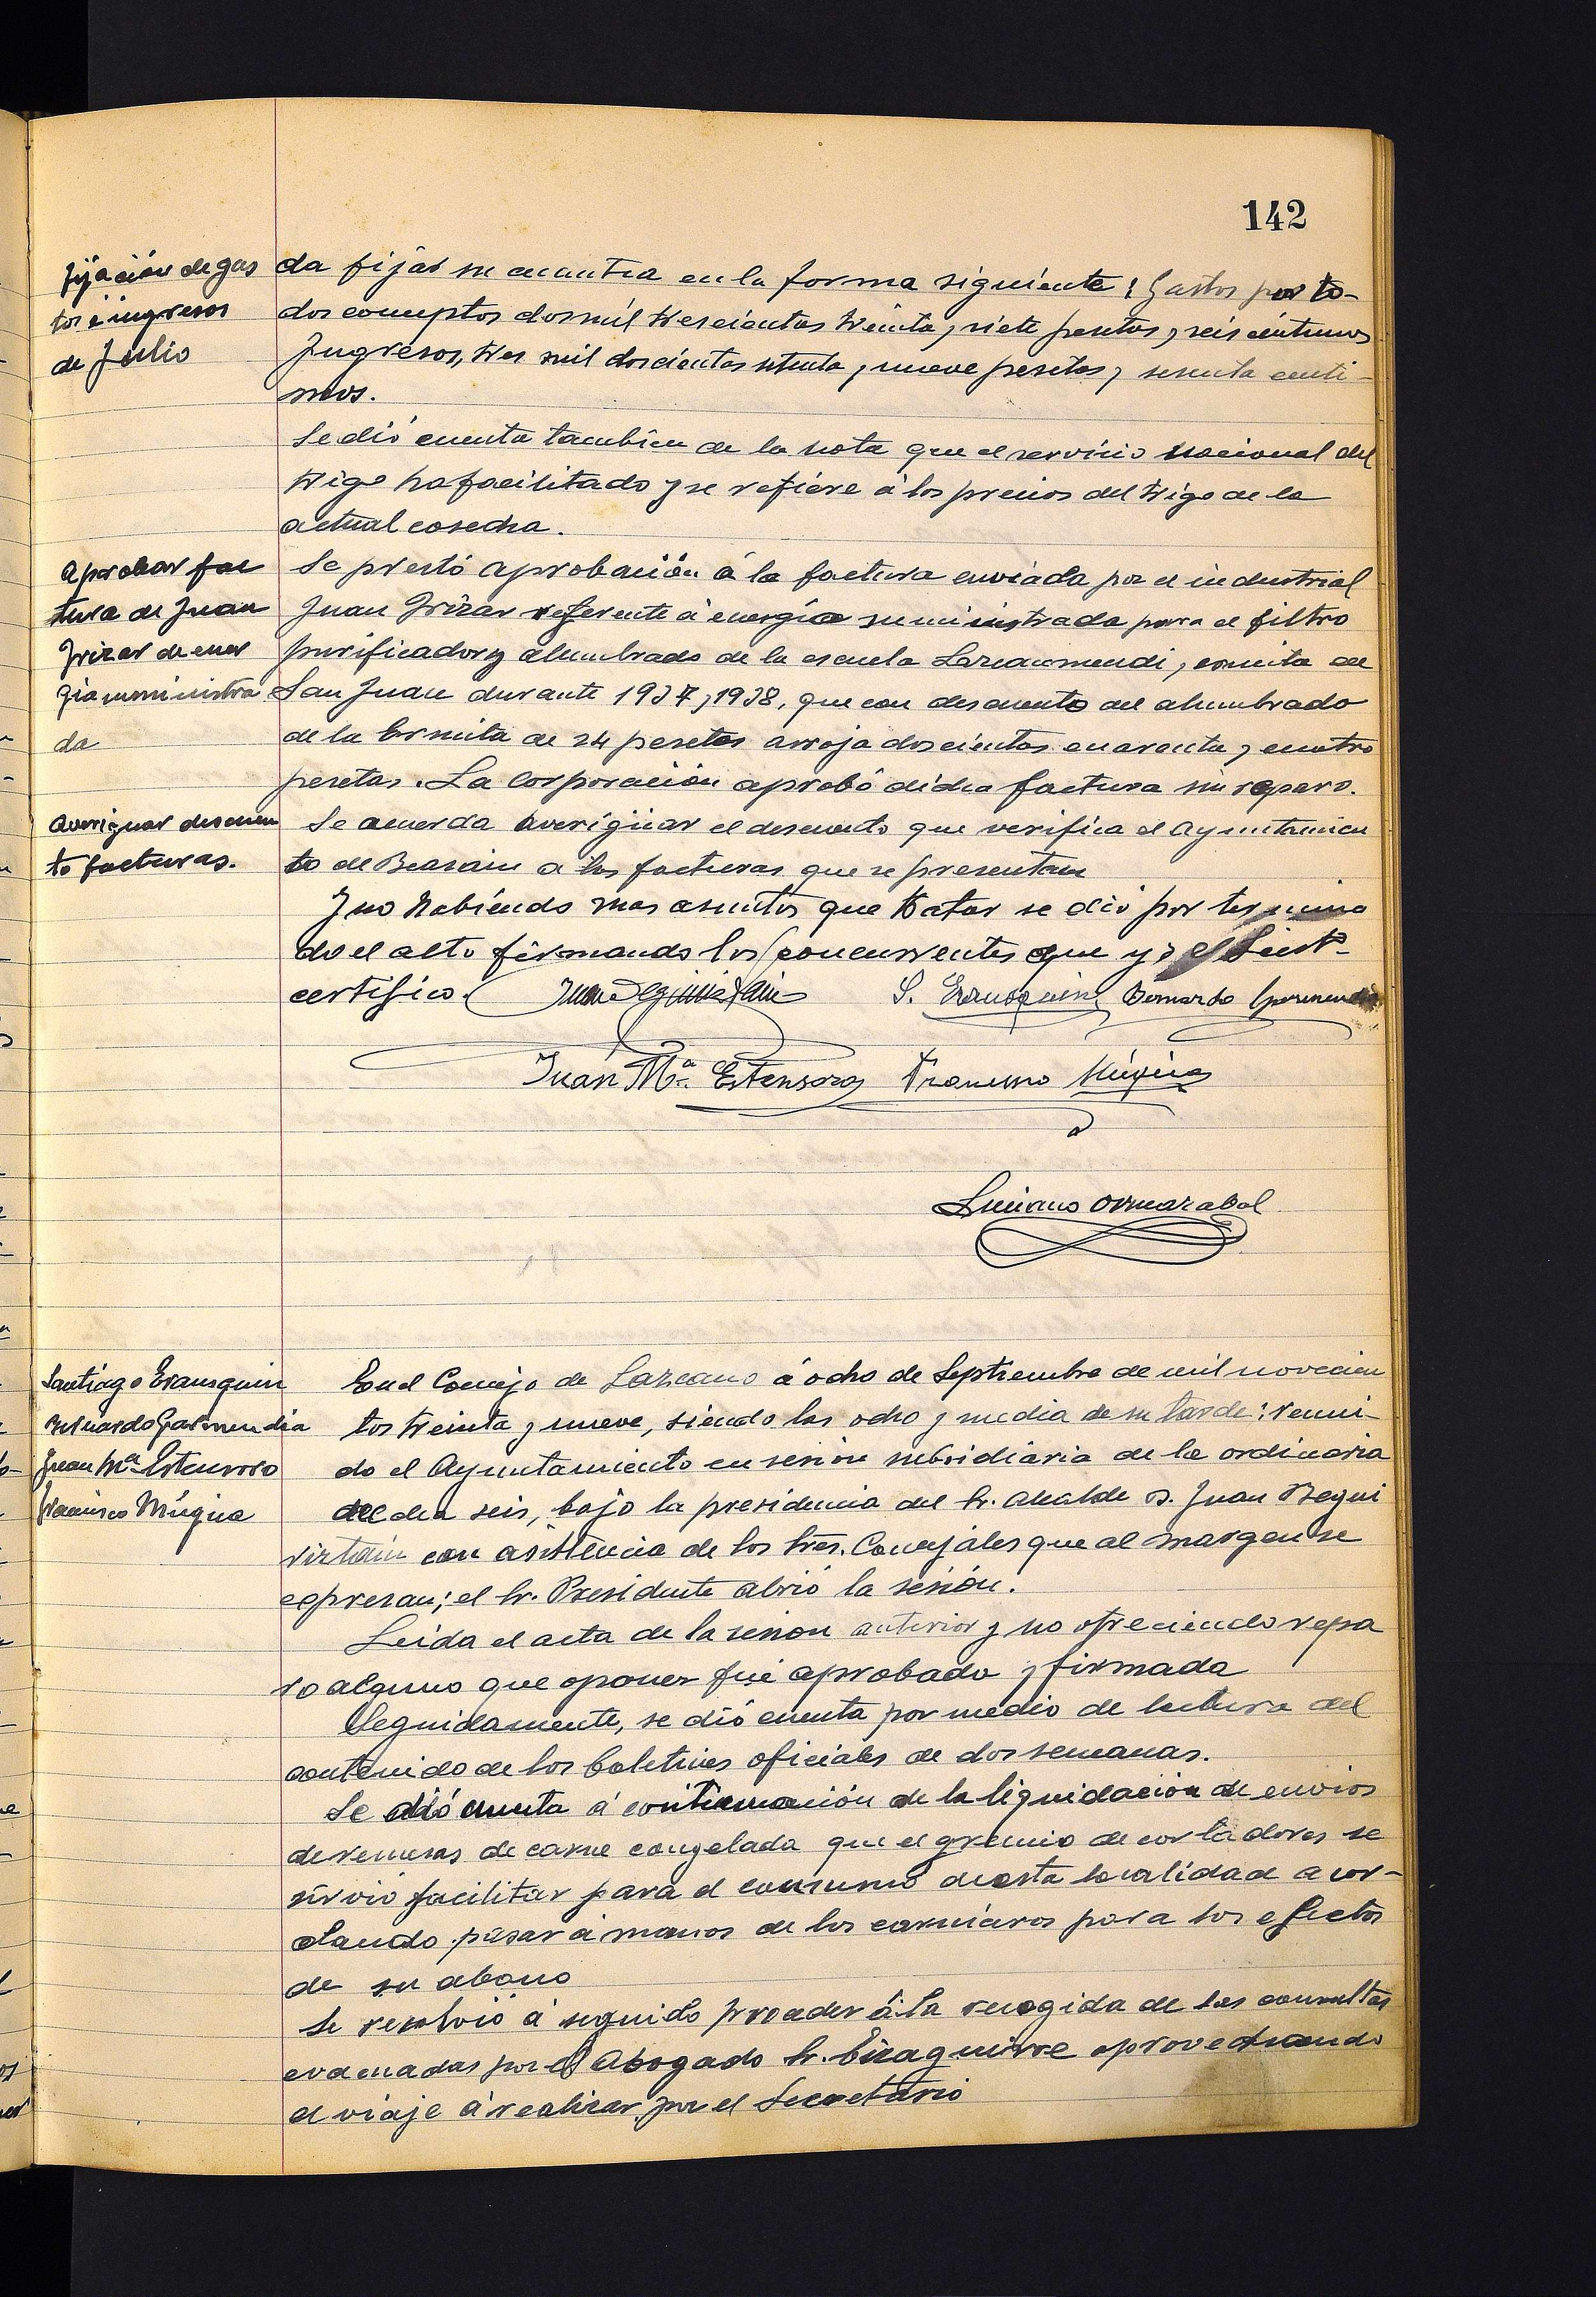 142
fijación de gas
tos é ingresos
de Julio
da fijar su cuantia en la forma siguiente: Gastos por to-
dos conceptos dos mil trescientas treinta y siete pesetas y seis céntimos
Ingresos, tres mil doscientas setenta y nueve pesetas y sesenta centi-
mos.
Se dió cuenta tambien de la nota que el servicio nacional del
trigo ha facilitado y se refiere á los precios del trigo de la
actual cosecha.
Aprobar fac
tura de Juan
Irizar de ener
gia suministra
da
Se prestó aprobación á la factura enviada por el industrial
Juan Irizar referente á energia suministrada para el filtro
purificador y alumbrado de la escuela Lazcaomendi, y ermita de
San Juan durante 1937 y 1938, que con descuento del alumbrado
de la Ermita de 24 pesetas arroja doscientas cuarenta y cuatro
pesetas. La Corporación aprobó dicha factura sin reparo.
Averiguar descuen
to facturas.
Se acuerda averigüar el descuento que verifica el Ayuntamien
to de Beasain a las facturas que se presentan
Y no habiendo mas asuntos que tratar se dió por termina
do el acto firmando los concurrentes que yo el Secrtº
certifico.
Juan Beguiristain S. Eransquin Bernardo Garmendia
Juan Mª Estensoro Francisco Múgica
Luciano Ormazabal
Santiago Eransquin
Bernardo Garmendia
Juan Mª Estensoro
Francisco Múgica
En el Concejo de Lazcano á ocho de Septiembre de mil novecien
tos treinta y nueve, siendo las ocho y media de su tarde: reuni-
do el Ayuntamiento en sesión subsidiaria de la ordinaria
del dia seis, bajo la presidencia del Sr. Alcalde D. Juan Begui
ristain con asistencia de los Sres. Concejales que al margen se
expresan; el Sr. Presidente abrió la sesión.
Leida el acta de la sesion anterior y no ofreciendo repa
ro alguno que oponer fué aprobada y firmada
Seguidamente, se dió cuenta por medio de lectura del
contenido de los boletines oficiales de dos semanas.
Se dió cuenta á continuación de la liquidación de envios
de remesas de carne congelada que el gremio de cortadores se
sirvió facilitar para el consumo de esta localidad acor-
dando pasar á manos de los carniceros para los efectos
de su abono
Se resolvió á seguido proceder á la recogida de las consultas
evacuadas por el Abogado Sr. Eizaguirre aprovechando
el viaje á realizar por el Secretario